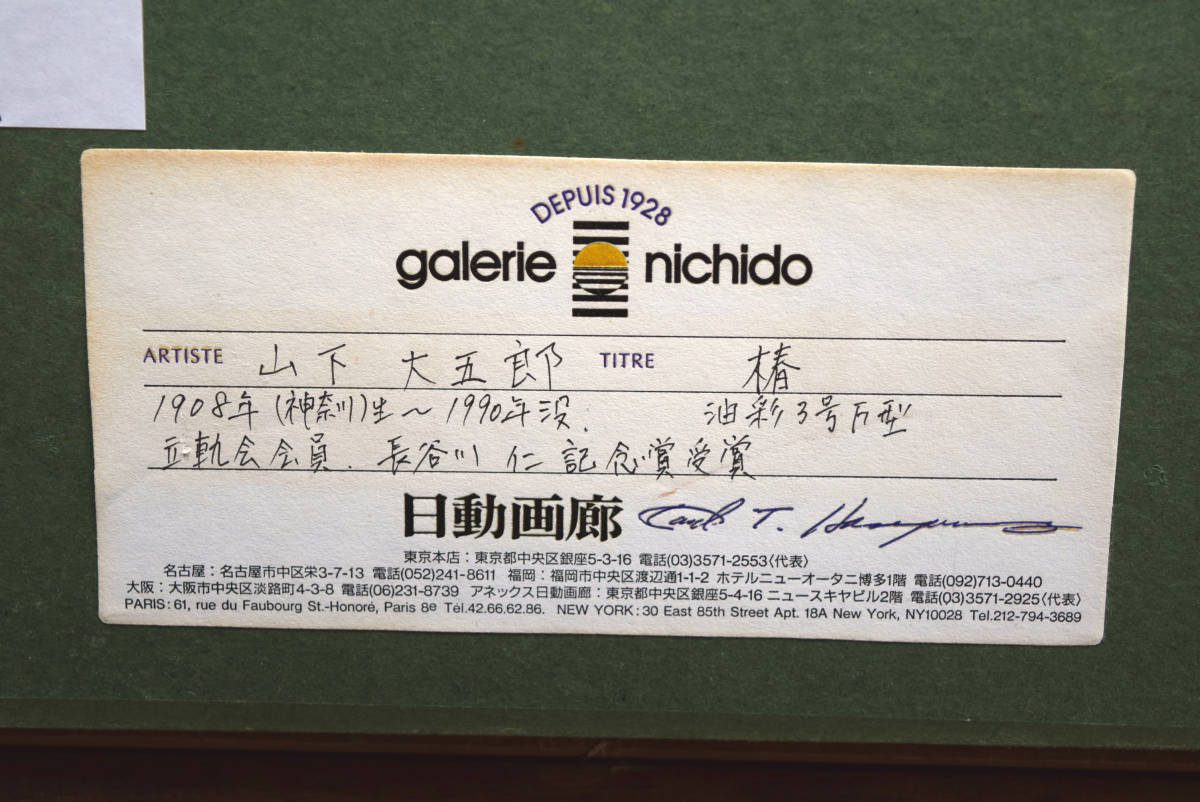 DEPUIS 1928
galerie nichido
ARTISTE 山下 大五郎 TITRE 椿
1908年(神奈川)生~1990年没. 油彩3号F型
立軌会会員. 長谷川 仁 記念賞受賞
日動画廊
東京本店:東京都中央区銀座5-3-16 電話(03)3571-2553〈代表〉
名古屋:名古屋市中区栄3-7-13 電話(052)241-8611 福岡:福岡市中央区渡辺通1-1-2 ホテルニューオータニ博多1階 電話(092)713-0440
大阪:大阪市中央区淡路町4-3-8 電話(06)231-8739 アネックス日動画廊:東京都中央区銀座5-4-16 ニュースキヤビル2階 電話(03)3571-2925〈代表〉
PARIS: 61, rue du Faubourg St-Honoré, Paris 8e Tél.42.66.62.86. NEW YORK: 30 East 85th Street Apt. 18A New York, NY10028 Tel.212-794-3689